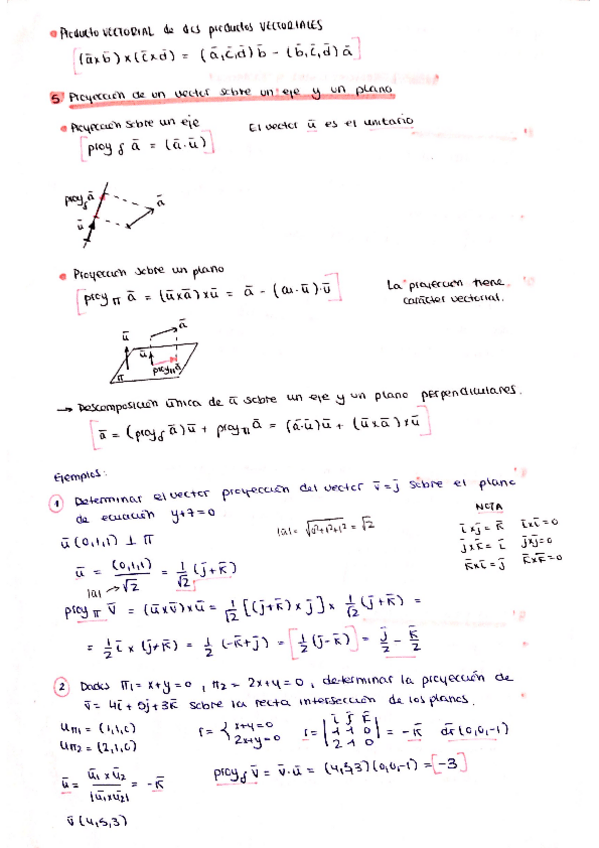 • Producto VECTORIAL de dos productos VECTORIALES
(ā×b̄)×(c̄×d̄) = (ā,c̄,d̄) b̄ - (b̄,c̄,d̄) ā
5 Proyección de un vector sobre un eje y un plano
• Proyección sobre un eje El vector ū es el unitario
proy δ ā = (ā·ū)
proy δ ā
ā
ū
• Proyección sobre un plano
proy π ā = (ū×ā)×ū = ā - (a·ū)·ū
La proyección tiene
carácter vectorial.
ū ā
ū
proy π ā
π
→ Descomposición única de ā sobre un eje y un plano perpendiculares.
ā = (proy δ ā)ū + proy π ā = (ā·ū)ū + (ū×ā)×ū
Ejemplos:
1 Determinar el vector proyección del vector v̄=j̄ sobre el plano
de ecuación y+z=0
ū(0,1,1) ⊥ π |a| = √(0²+1²+1²) = √2
NOTA
ī×j̄=k̄ ī×ī=0
j̄×k̄=ī j̄×j̄=0
k̄×ī=j̄ k̄×k̄=0
ū = (0,1,1)/√2 = 1/√2 (j̄+k̄)
|a| →
proy π v̄ = (ū×v̄)×ū = 1/√2 [(j̄+k̄)×j̄]× 1/√2 (j̄+k̄) =
= 1/2 ī × (j̄+k̄) = 1/2 (-k̄+j̄) = [1/2 (j̄-k̄)] = j̄/2 - k̄/2
2 Dados π1 = x+y=0, π2 = 2x+y=0, determinar la proyección de
v̄ = 4ī + 5j̄ + 3k̄ sobre la recta intersección de los planos.
uπ1 = (1,1,0)
uπ2 = (2,1,0)
r = { x+y=0
2x+y=0
r = | ī j̄ k̄
1 1 0
2 1 0 | = -k̄ dr(0,0,-1)
ū = ū1×ū2 / |ū1×ū2| = -k̄
proy δ v̄ = v̄·ū = (4,5,3)(0,0,-1) = [-3]
v̄(4,5,3)